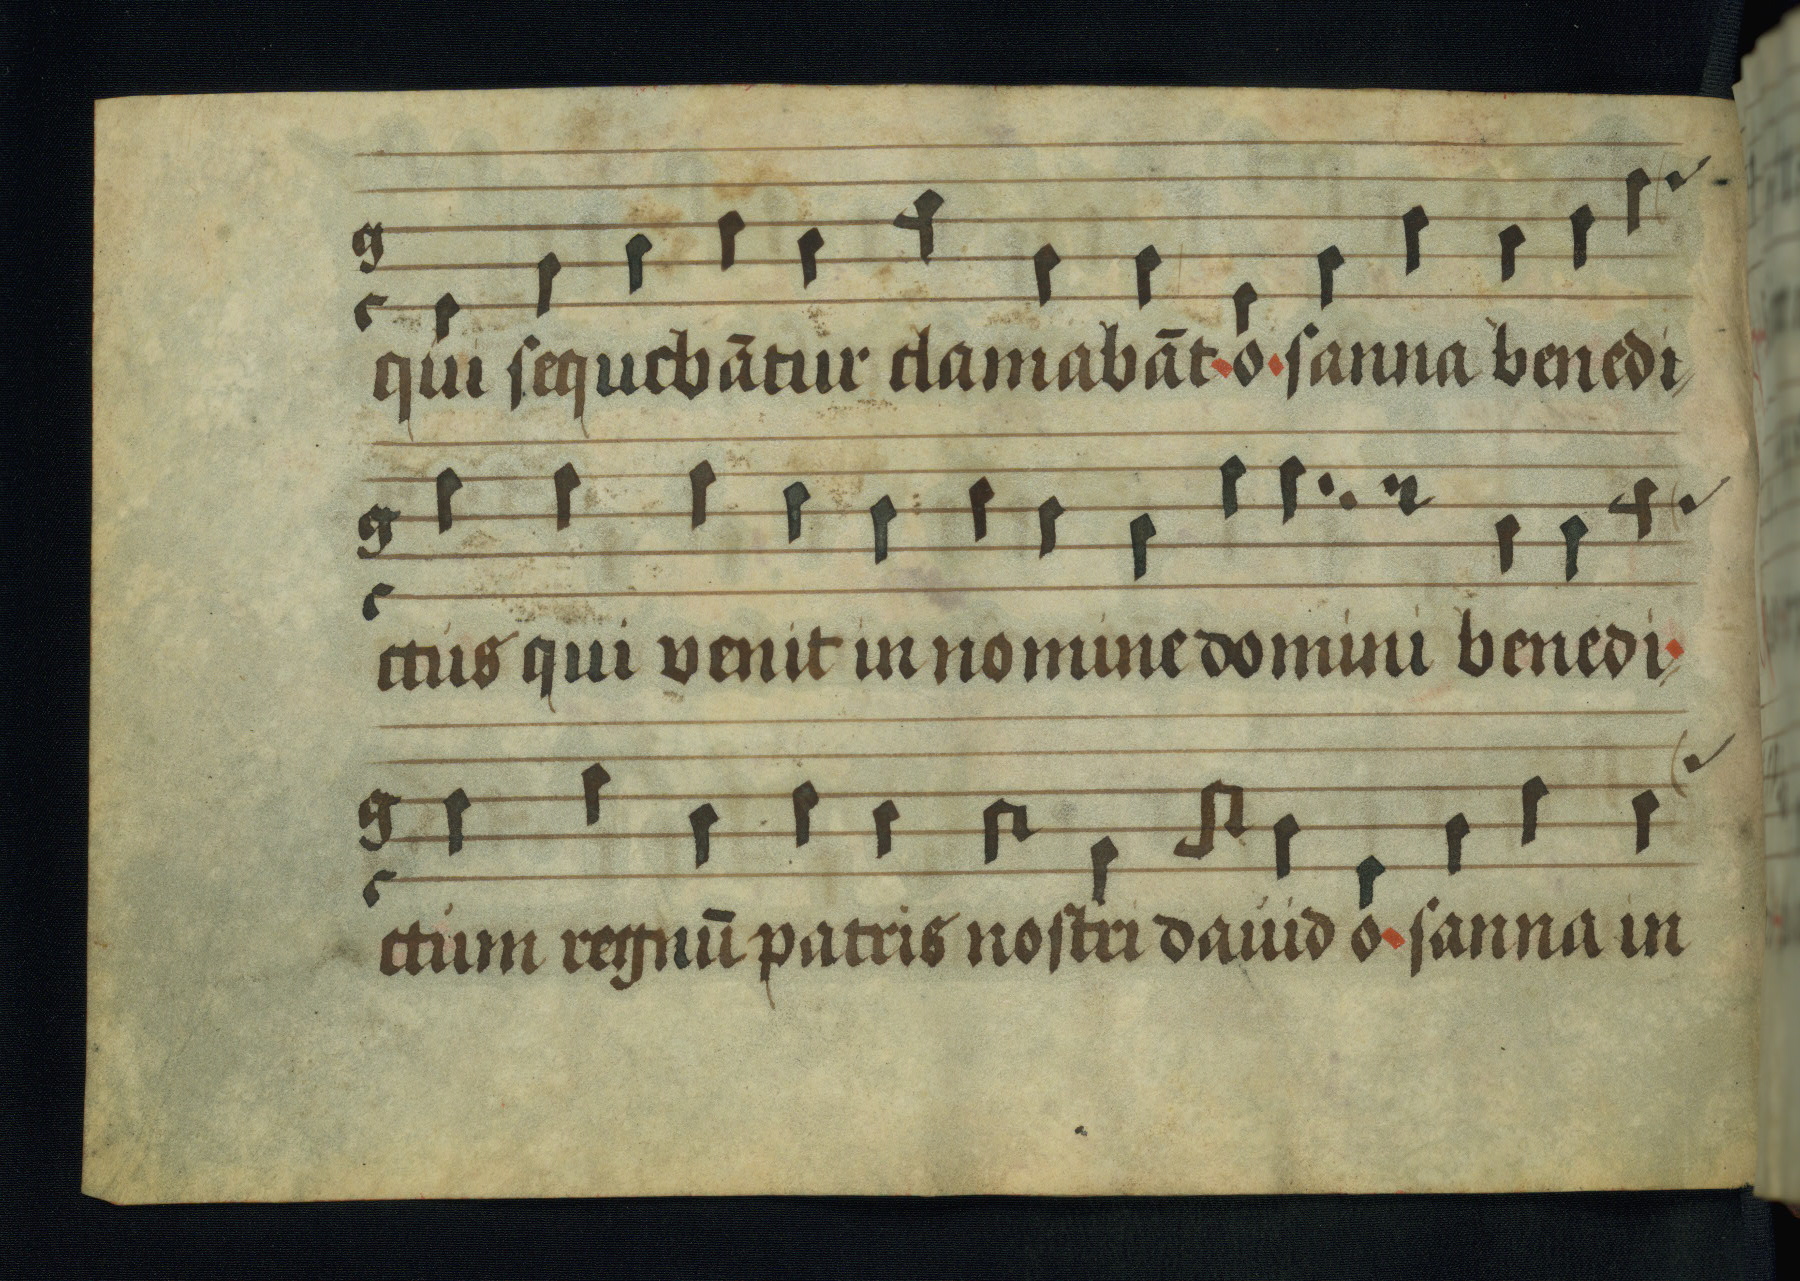 qui sequebātur clamabāt o sanna benedi
ctus qui venit in nomine domini benedi
ctum regnū patris nostri dauid o sanna in